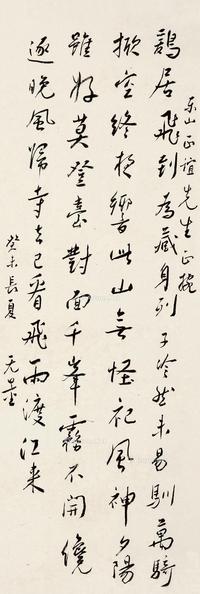 樂山正誼先生正腕
鶢居飛到為藏身列子冷然未易馴萬騎
掀空終夜響此山無怪祀風神夕陽
雖好莫登臺對面千峯霧不開纔
逐晚風歸寺去已看飛雨渡江來
癸未長夏
无量